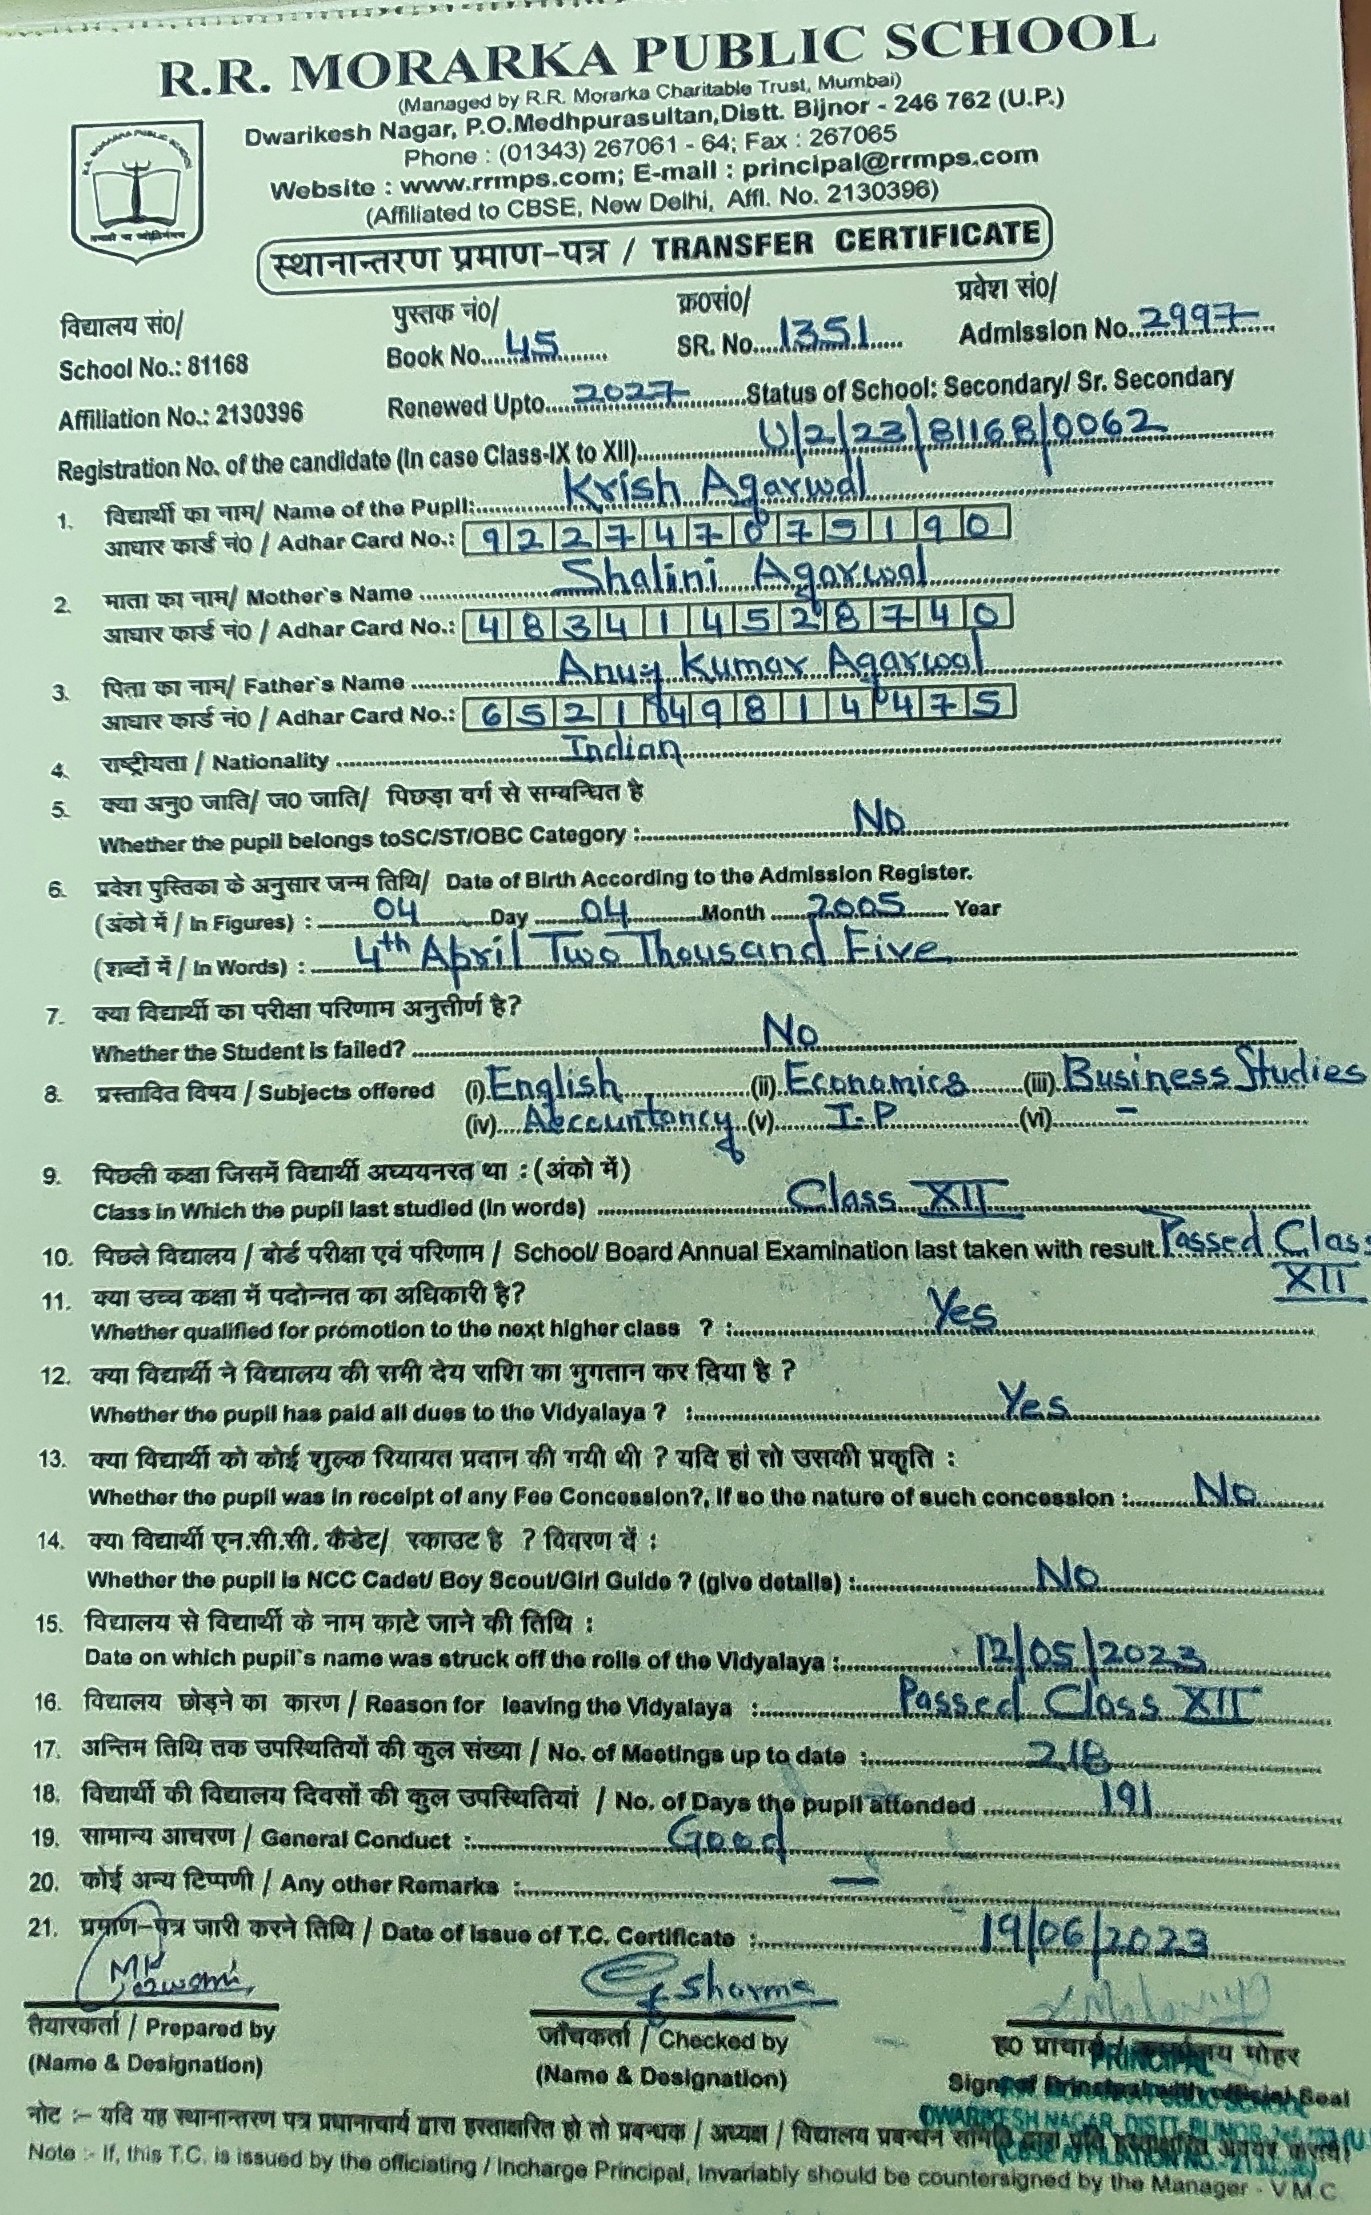 R.R. MORARKA PUBLIC SCHOOL
(Managed by R.R. Morarka Charitable Trust, Mumbai)
Dwarikesh Nagar, P.O.Medhpurasultan,Distt. Bijnor - 246 762 (U.P.)
Phone : (01343) 267061 - 64; Fax : 267065
Website : www.rrmps.com; E-mail : principal@rrmps.com
(Affiliated to CBSE, New Delhi, Affl. No. 2130396)
R.R. MORARKA PUBLIC SCHOOL
स्थानान्तरण प्रमाण-पत्र / TRANSFER CERTIFICATE
विद्यालय सं0/ पुस्तक नं0/ क्र0सं0/ प्रवेश सं0/
School No.: 81168 Book No. 45 SR. No. 1351 Admission No. 2997
Affiliation No.: 2130396 Renewed Upto 2027 Status of School: Secondary/ Sr. Secondary
Registration No. of the candidate (In case Class-IX to XII) U/2/23/81168/0062
1. विद्यार्थी का नाम/ Name of the Pupil: Krish Agarwal
आधार कार्ड नं0 / Adhar Card No.: 922747075190
2. माता का नाम/ Mother's Name Shalini Agarwal
आधार कार्ड नं0 / Adhar Card No.: 483414528740
3. पिता का नाम/ Father's Name Anuj Kumar Agarwal
आधार कार्ड नं0 / Adhar Card No.: 652149814475
4. राष्ट्रीयता / Nationality Indian
5. क्या अनु0 जाति/ ज0 जाति/ पिछड़ा वर्ग से सम्बन्धित है
Whether the pupil belongs toSC/ST/OBC Category : No
6. प्रवेश पुस्तिका के अनुसार जन्म तिथि/ Date of Birth According to the Admission Register.
(अंको में / In Figures) : 04 Day 04 Month 2005 Year
(शब्दों में / In Words) : 4th April Two Thousand Five
7. क्या विद्यार्थी का परीक्षा परिणाम अनुत्तीर्ण है?
Whether the Student is failed? No
8. प्रस्तावित विषय / Subjects offered (i) English (ii) Economics (iii) Business Studies
(iv) Accountancy (v) I.P (vi) -
9. पिछली कक्षा जिसमें विद्यार्थी अध्ययनरत था : (अंको में)
Class in Which the pupil last studied (in words) Class XII
10. पिछले विद्यालय / बोर्ड परीक्षा एवं परिणाम / School/ Board Annual Examination last taken with result Passed Class
XII
11. क्या उच्च कक्षा में पदोन्नत का अधिकारी है?
Whether qualified for promotion to the next higher class ? : Yes
12. क्या विद्यार्थी ने विद्यालय की सभी देय राशि का भुगतान कर दिया है ?
Whether the pupil has paid all dues to the Vidyalaya ? : Yes
13. क्या विद्यार्थी को कोई शुल्क रियायत प्रदान की गयी थी ? यदि हां तो उसकी प्रकृति :
Whether the pupil was in receipt of any Fee Concession?, If so the nature of such concession : No
14. क्या विद्यार्थी एन.सी.सी. कैडेट/ स्काउट है ? विवरण दें :
Whether the pupil is NCC Cadet/ Boy Scout/Girl Guide ? (give details) : No
15. विद्यालय से विद्यार्थी के नाम काटे जाने की तिथि :
Date on which pupil's name was struck off the rolls of the Vidyalaya : 12/05/2023
16. विद्यालय छोड़ने का कारण / Reason for leaving the Vidyalaya : Passed Class XII
17. अन्तिम तिथि तक उपस्थितियों की कुल संख्या / No. of Meetings up to date : 218
18. विद्यार्थी की विद्यालय दिवसों की कुल उपस्थितियां / No. of Days the pupil attended 191
19. सामान्य आचरण / General Conduct : Good
20. कोई अन्य टिप्पणी / Any other Remarks : —
21. प्रमाण-पत्र जारी करने तिथि / Date of Issue of T.C. Certificate : 19/06/2023
Sharma
तैयारकर्ता / Prepared by जाँचकर्ता / Checked by ह0 प्राचार्य / कार्यालय मोहर
(Name & Designation) (Name & Designation) Sign of Principal with official Seal
PRINCIPAL
DWARIKESH NAGAR, DISTT. BIJNOR
नोट :- यदि यह स्थानान्तरण पत्र प्रधानाचार्य द्वारा हस्ताक्षरित हो तो प्रबन्धक / अध्यक्ष / विद्यालय प्रबन्धन समिति द्वारा
Note :- If, this T.C. is issued by the officiating / Incharge Principal, Invariably should be countersigned by the Manager - V M C